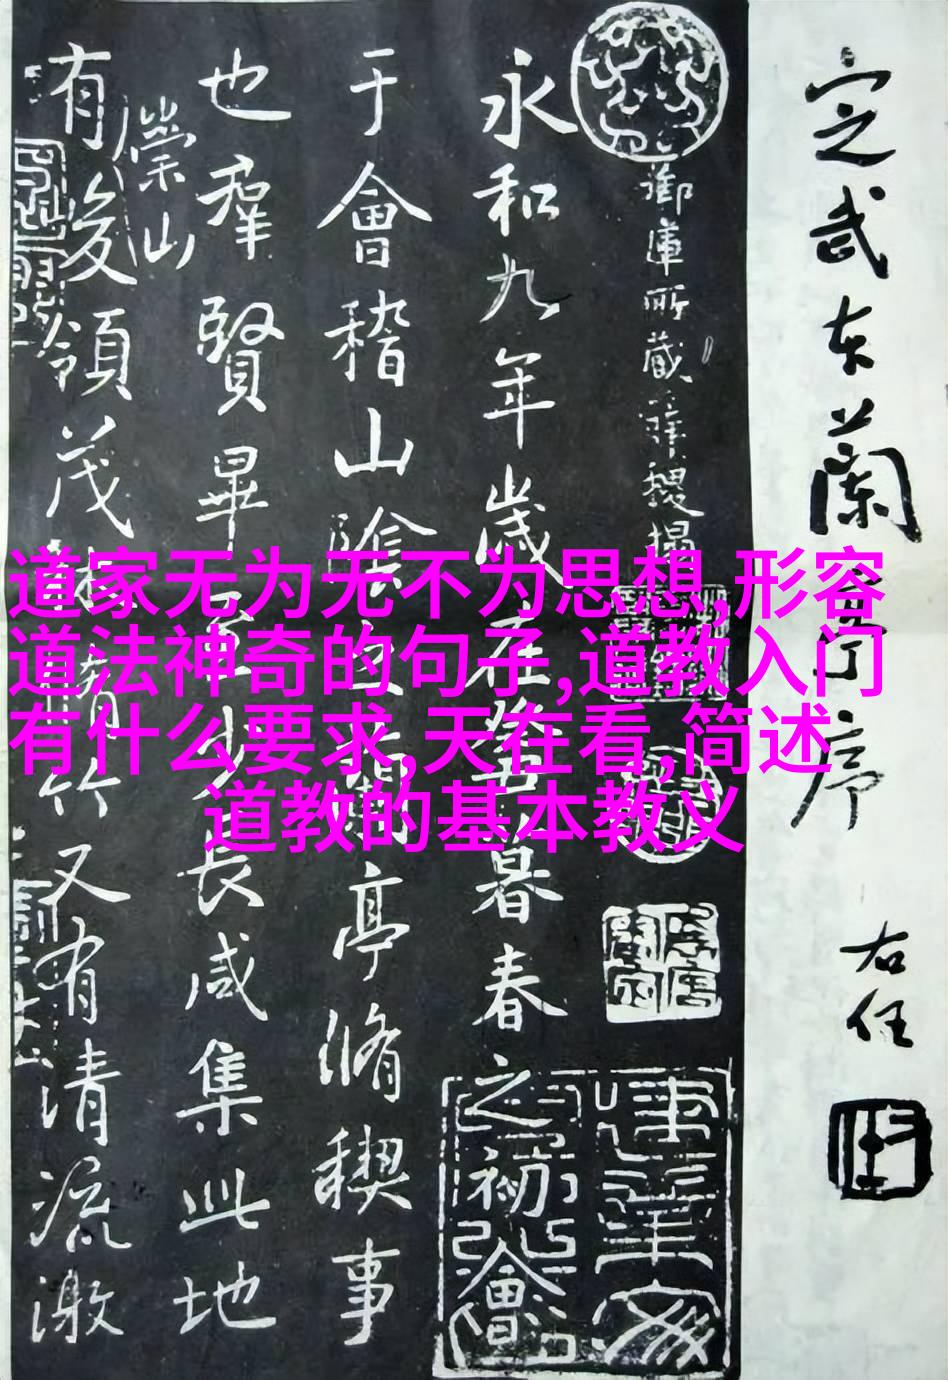 定武本蘭亭序
右任
御庫所藏禊搨
永和九年歲在癸丑暮春之初會
于會稽山陰之蘭亭脩禊事
也羣賢畢至少長咸集此地
有崇山
峻領茂林脩竹又有清流激
道家无为无不为思想,形容
道法神奇的句子,道教入门
有什么要求,天在看,简述
道教的基本教义